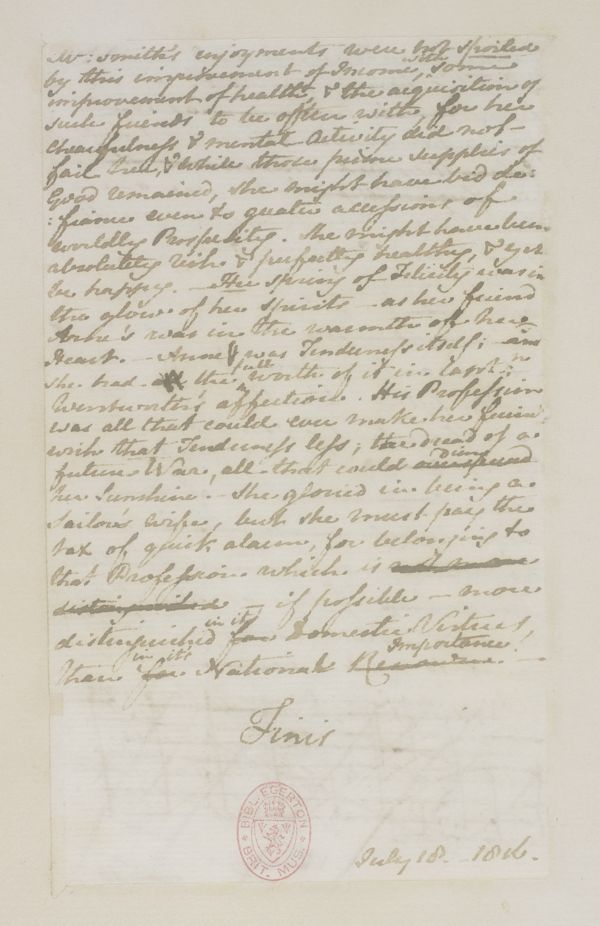 Mrs: Smith's enjoyments were not spoiled
by this improvement of Income, with some
improvement of health, & the acquisition of
such friends to be often with, for her
chearfulness & mental Activity did not
fail her, & while those prime supplies of
Good remained, she might have bid de:
:fiance even to greater accessions of
worldly Prosperity. She might have been
absolutely rich & perfectly healthy, & yet
be happy. — Her spring of Felicity was in
the glow of her Spirits — as her friend
Anne's was in the warmth of her
Heart. — Anne was Tenderness itself; — and
she had the full worth of it in Capt:n
Wentworth's affection. His Profession
was all that could ever make her friends
wish that Tenderness less; the dread of a
future War, all that could dim
her Sunshine. — She gloried in being a
Sailor's wife, but she must pay the
tax of quick alarm, for belonging to
that Profession which is not more
distinguished — if possible — more
distinguished for in it's Domestic Virtues,
than for in it's National Renown Importance. —
Finis
BIBL. EGERTON
BRIT. MUS.
July 18. — 1816.